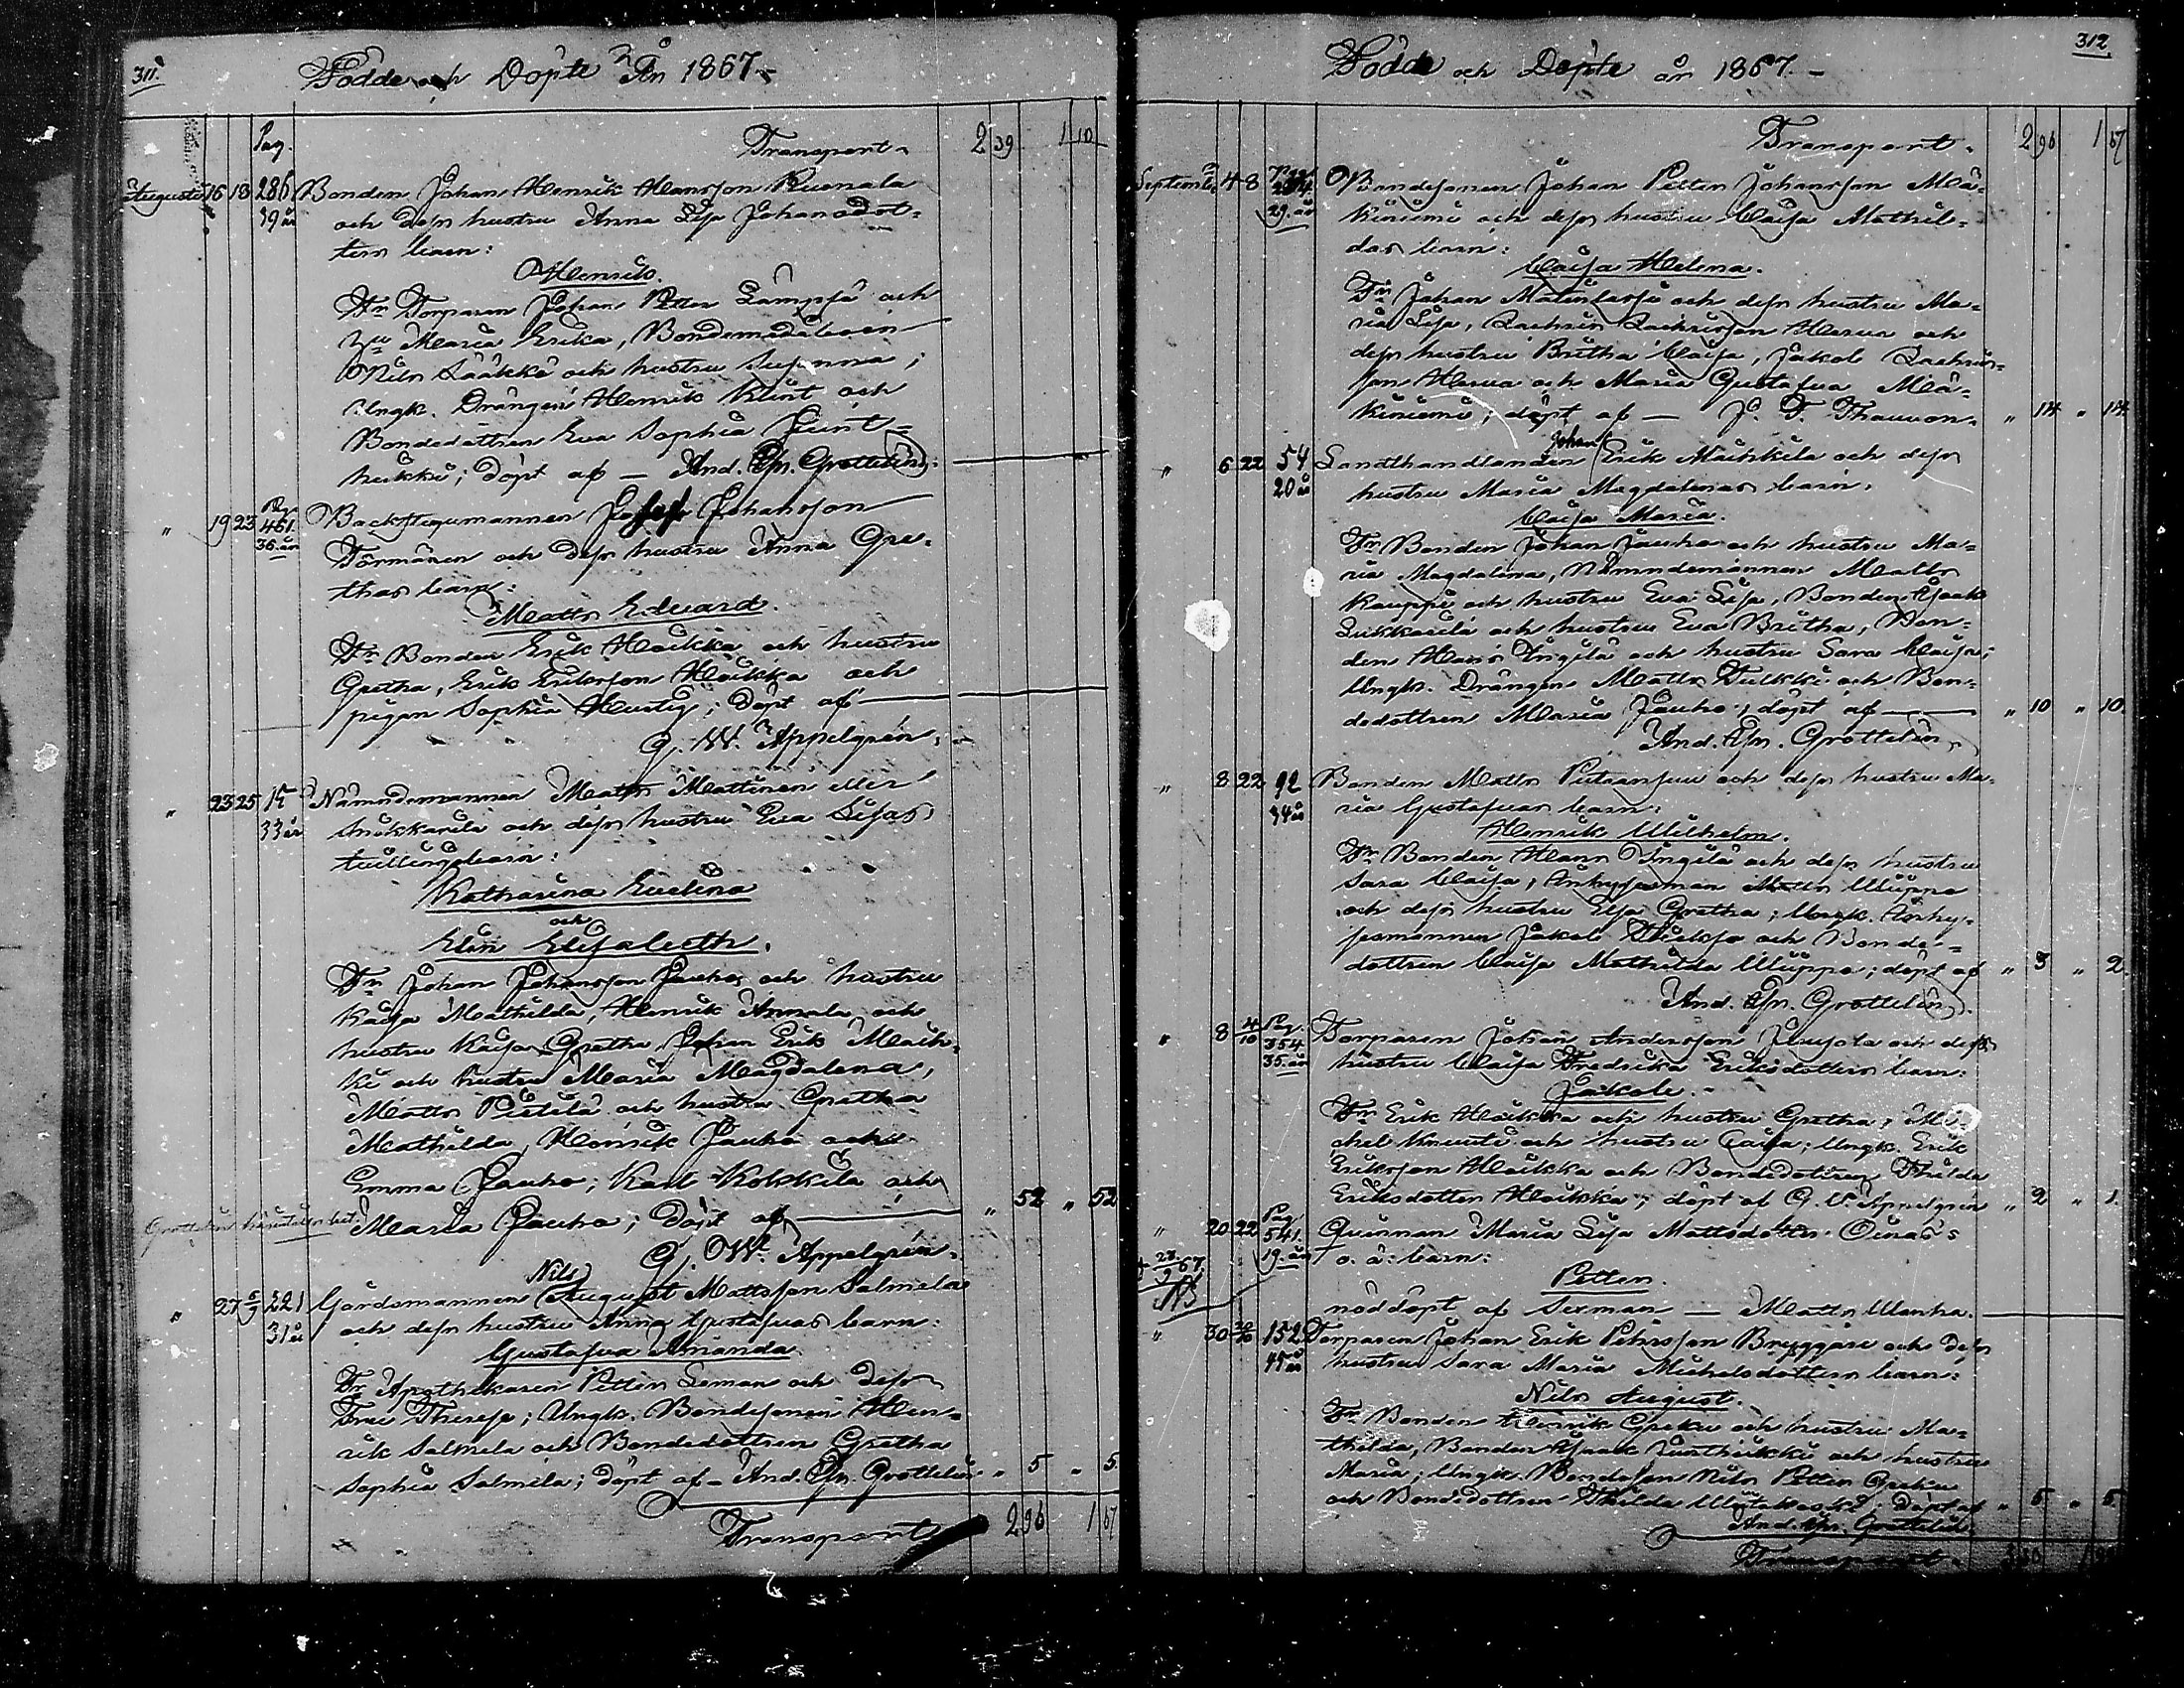 311.
Födde och Döpte År 1867.
Pag.
Transport. 2 39 1 10
Augusti 16 18 286 Bonden Johan Henrik Hansson Ruonala
39 år och dess hustru Anna Lisa Johansdot=
ters barn:
Henrik.
Fr Torparen Johan Petter Lampsa och
Maria Erika, Bondemåden
Nils Lääkkö och hustru Susanna;
Ungk. Drängen Henrik Klint och
Bondedottren Eva Sophia Junt=
hikki; döpt af — And. Joh. Grottelin.
" 19 23 Pag. 461. Backstugumannen Johansson
36. år Törmänen och dess hustru Anna Gre=
thas barn:
Matts Edvard.
Fr Bonden Erik Haikka och hustru
Gretha, Erik Eriksson Haikka och
pigan Sophia Hertig; döpt af —
G. W. Appelgrén.
" 23 25 15 Nämndemannen Matts Mattinen eller
33 år Sukkarila och dess hustru Eva Lisas
tvillingbarn:
Katharina Evelina
och
Elin Elisabeth.
Fr Johan Johansson Jauho och hustru
Kaisa Mathilda, Henrik Annala och
hustru Kaisa Gretha, Johan Erik Maih=
ki och hustru Maria Magdalena,
Matts Pietilä och hustru Gretha
Mathilda, Henrik Jauho och
Emma Jauho; Karl Kokkila och
Maria Jauho; döpt af — " 52 " 52
G. W. Appelgrén.
Nils
" 27 5/9 221 Gårdsmannen August Mattsson Salmela
31 år och dess hustru Anna Gustafvas barn:
Gustafva Amanda.
Fr Apothekaren Petter Leman och dess
Fru Therese; Ungk. Bondesonen Hen=
rik Salmela och Bondedottren Gretha
Sophia Salmela; döpt af — And. Joh. Grottelin. " 5 " 5
Transport 2 96 1 67
312
Födde och Döpte år 1867.
Transport. 2 96 1 67
September 4 8 Bondesonen Johan Petter Johansson Mä=
29. år kiniemi och dess hustru Caisa Mathil=
das barn:
Caisa Helena.
Fr Johan Matinlassi och dess hustru Ma=
ria Lisa, Zachris Zachrisson Herva och
dess hustru Britha Caisa, Jakob Zachris=
son Herva och Maria Gustafva Mä=
kiniemi; döpt af — J. F. Thauvon. " 14 " 14.
Johan
" 6 22 54 Landthandlanden Erik Maihkila och dess
20 år hustru Maria Magdalenas barn:
Caisa Maria.
Fr Bonden Johan Jauho och hustru Ma=
ria Magdalena, Nämndemannen Matts
Kauppi och hustru Eva Lisa, Bonden Isaak
Sukkarila och hustru Eva Britha, Bon=
den Hans Ingilä och hustru Sara Caisa;
Ungk. Drängen Matts Tulkki och Bon=
dedottren Maria Jauho; döpt af — " 10 " 10.
And. Joh. Grottelin.
" 8 22 92 Bonden Matts Putaansuu och dess hustru Ma=
34 år ria Gustafvas barn:
Henrik Wilhelm.
Fr Bonden Hans Ingilä och dess hustru
Sara Caisa, Inhysesman Matts Uluppa
och dess hustru Elsa Gretha; Ungk. Inhy=
sesmannen Jakob och Bonde=
dottren Caisa Mathilda Uluppa; döpt af " 3 " 2.
And. Joh. Grottelin.
" 8 4/10 Pag. 354 Torparen Johan Andersson Junjola och dess
35. år hustru Caisa Fredrika Eriksdotters barn:
Jakob.
Fr Erik Haikka och hustru Gretha; Mi=
chel Knuuti och hustru Caisa; Ungk. Erik
Eriksson Haikka och Bondedottren Thilda
Eriksdotter Haikka; döpt af G. W. Appelgrén " 2 " 1.
" 20 22 Pag 541. Qvinnan Maria Lisa Mattsdotter Oinas's
19. år o. ä. barn:
Petter.
† 28/9 67.
NB
nöddöpt af Sexman — Matts Wanha.
" 30 152 Torparen Johan Erik Pehrsson Bryggare och dess
45 år hustru Sara Maria Michelsdotters barn:
Nils August.
Fr Bonden Henrik Greku och hustru Ma=
thilda, Bonden Isaak Junthikki och hustru
Maria; Ungk. Bondeson Nils Petter Greku
och Bondedottren Thilda; döpt af " 5 " 5
And. Joh. Grottelin.
Transport.